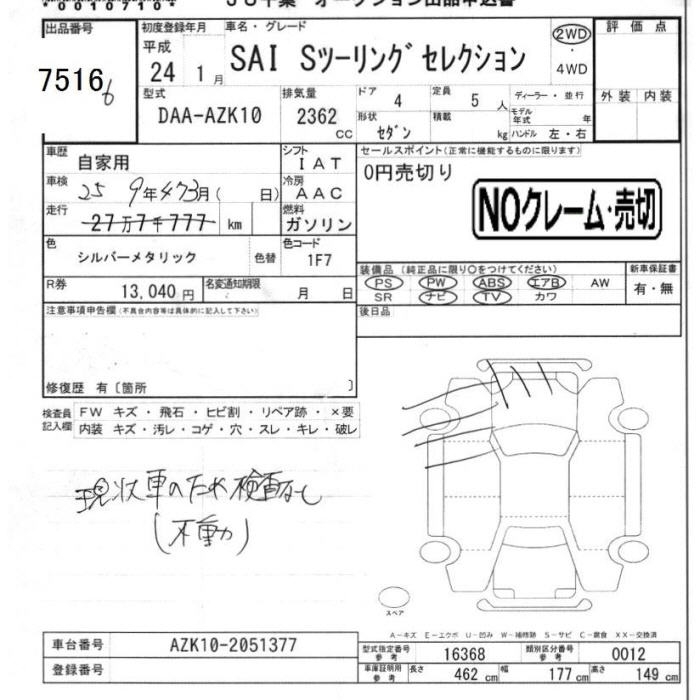 出品番号
7516
6
初度登録年月
平成
24 1月
車名・グレード
SAI Sツーリングセレクション
2WD
・
4WD
評価点
外装 内装
型式
DAA-AZK10
排気量
2362
CC
ドア
4
定員
5 人
形状
セダン
積載
kg
ディーラー・並行
モデル年式 年
ハンドル 左・右
車歴
自家用
シフト
IAT
車検
25 9年 月( 日)
冷房
AAC
走行
27万7千777 km
燃料
ガソリン
色
シルバーメタリック
色替
色コード
1F7
R券
13,040円
名変通知期限
月 日
セールスポイント(正常に機能するものに限ります)
0円売切り
NOクレーム・売切
装備品(純正品に限り○をつけてください)
PS PW ABS エアB AW
SR ナビ TV カワ
新車保証書
有・無
後日品
注意事項申告欄(不具合内容等は具体的に記入して下さい)
修復歴 有〔箇所 〕
検査員
記入欄
FW キズ・飛石・ヒビ割・リペア跡・×要
内装 キズ・汚レ・コゲ・穴・スレ・キレ・破レ
現状車のため検査なし
(不動)
スペア
A-キズ E-エクボ U-凹み W-補修跡 S-サビ C-腐食 XX-交換済
車台番号
AZK10-2051377
登録番号
型式指定番号
参考
16368
類別区分番号
参考
0012
車庫証明用
参考
長さ
462 cm
幅
177 cm
高さ
149 cm